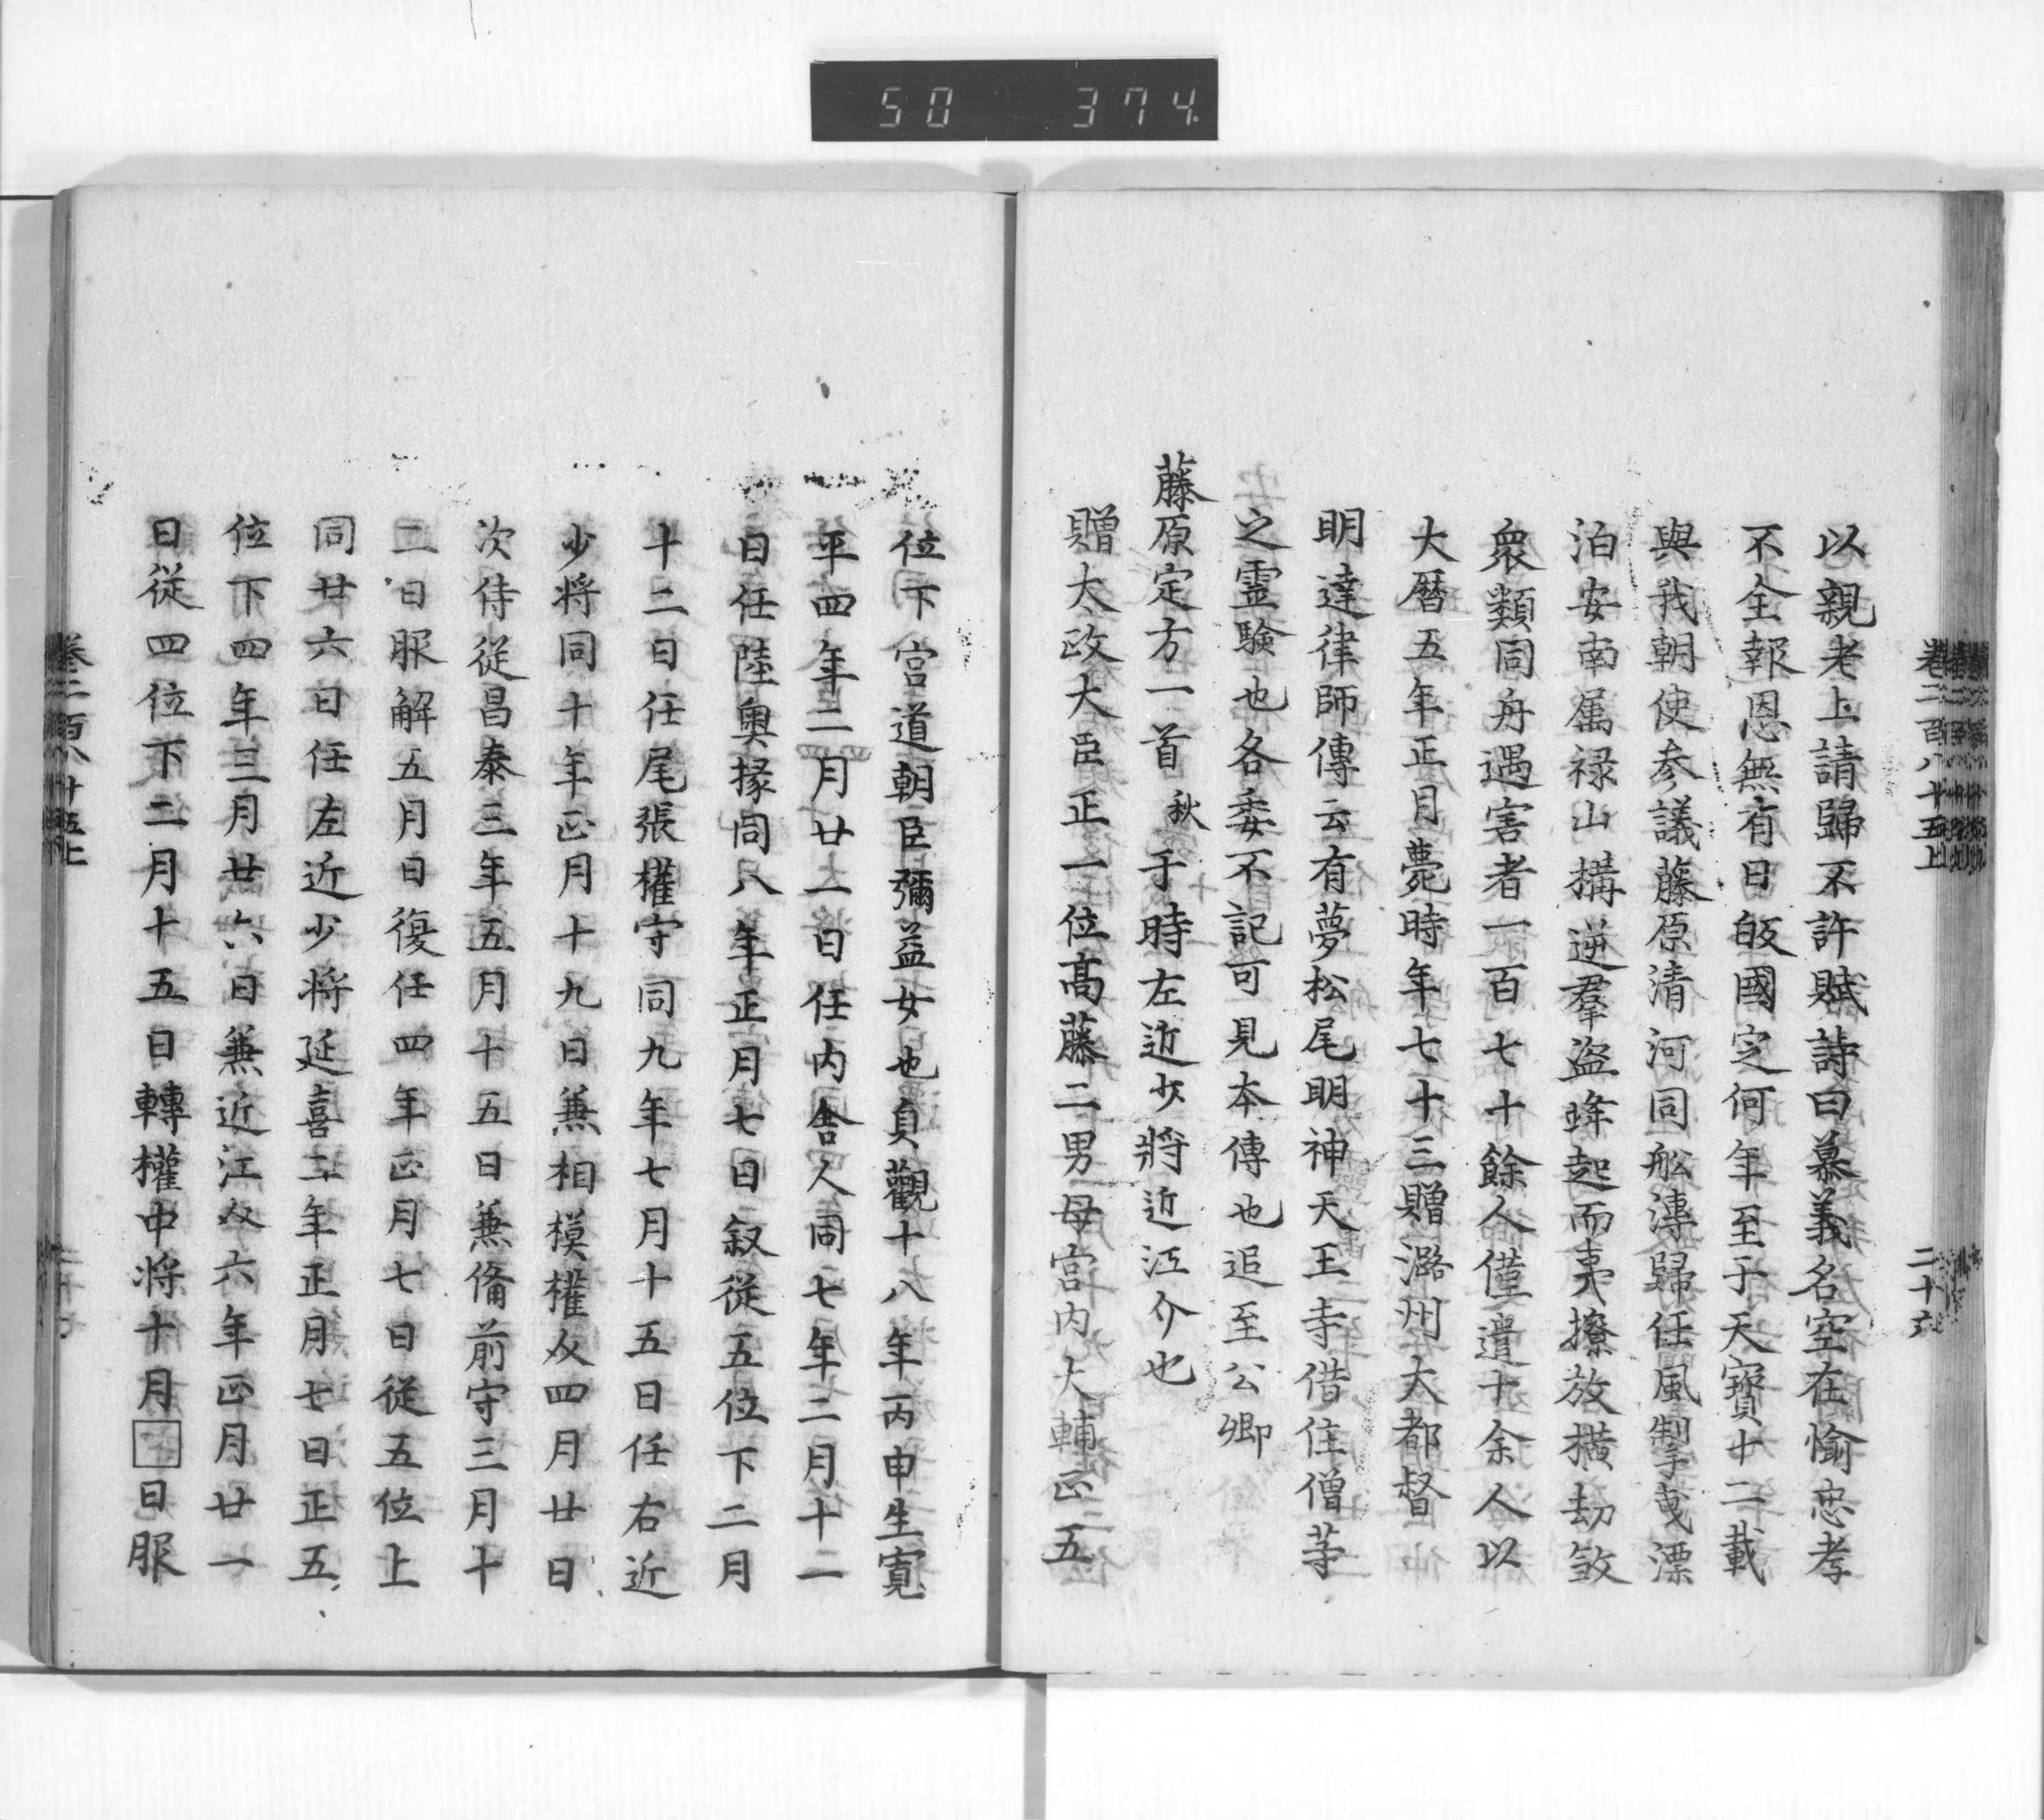 50 374.
卷二百八十五上 二十六
以親老上請歸不許賦詩曰慕義名空在愉忠孝
不全報恩無有日皈國定何年至于天寶十二載
與我朝使参議藤原清河同舩漙歸任風掣曳漂
泊安南属禄山搆逆羣盗蜂起而夷撩放横劫斂
衆類同舟遇害者一百七十餘人僅遺十余人以
大暦五年正月薨時年七十三贈潞州大都督
明達律師傳云有夢松尾明神天王寺借住僧等
之霊驗也各委不記可見本傳也追至公卿
藤原定方一首 秋 于時左近少將近江介也
贈太政大臣正一位髙藤二男母宮内大輔正五
位下宮道朝臣彌益女也貞觀十八年丙申生寛
平四年二月廿一日任内舎人同七年二月十二
日任陸奥掾同八年正月七日叙従五位下二月
十二日任尾張權守同九年七月十五日任右近
少将同十年正月十九日兼相模權介四月廿日
次侍従昌泰三年五月十五日兼俻前守三月十
二日服解五月日復任四年正月七日従五位上
同廿六日任左近少将延喜二年正月七日正五
位下四年三月廿六日兼近江介六年正月廿一
日従四位下二月十五日轉權中将十月□日服
卷二百八十五上